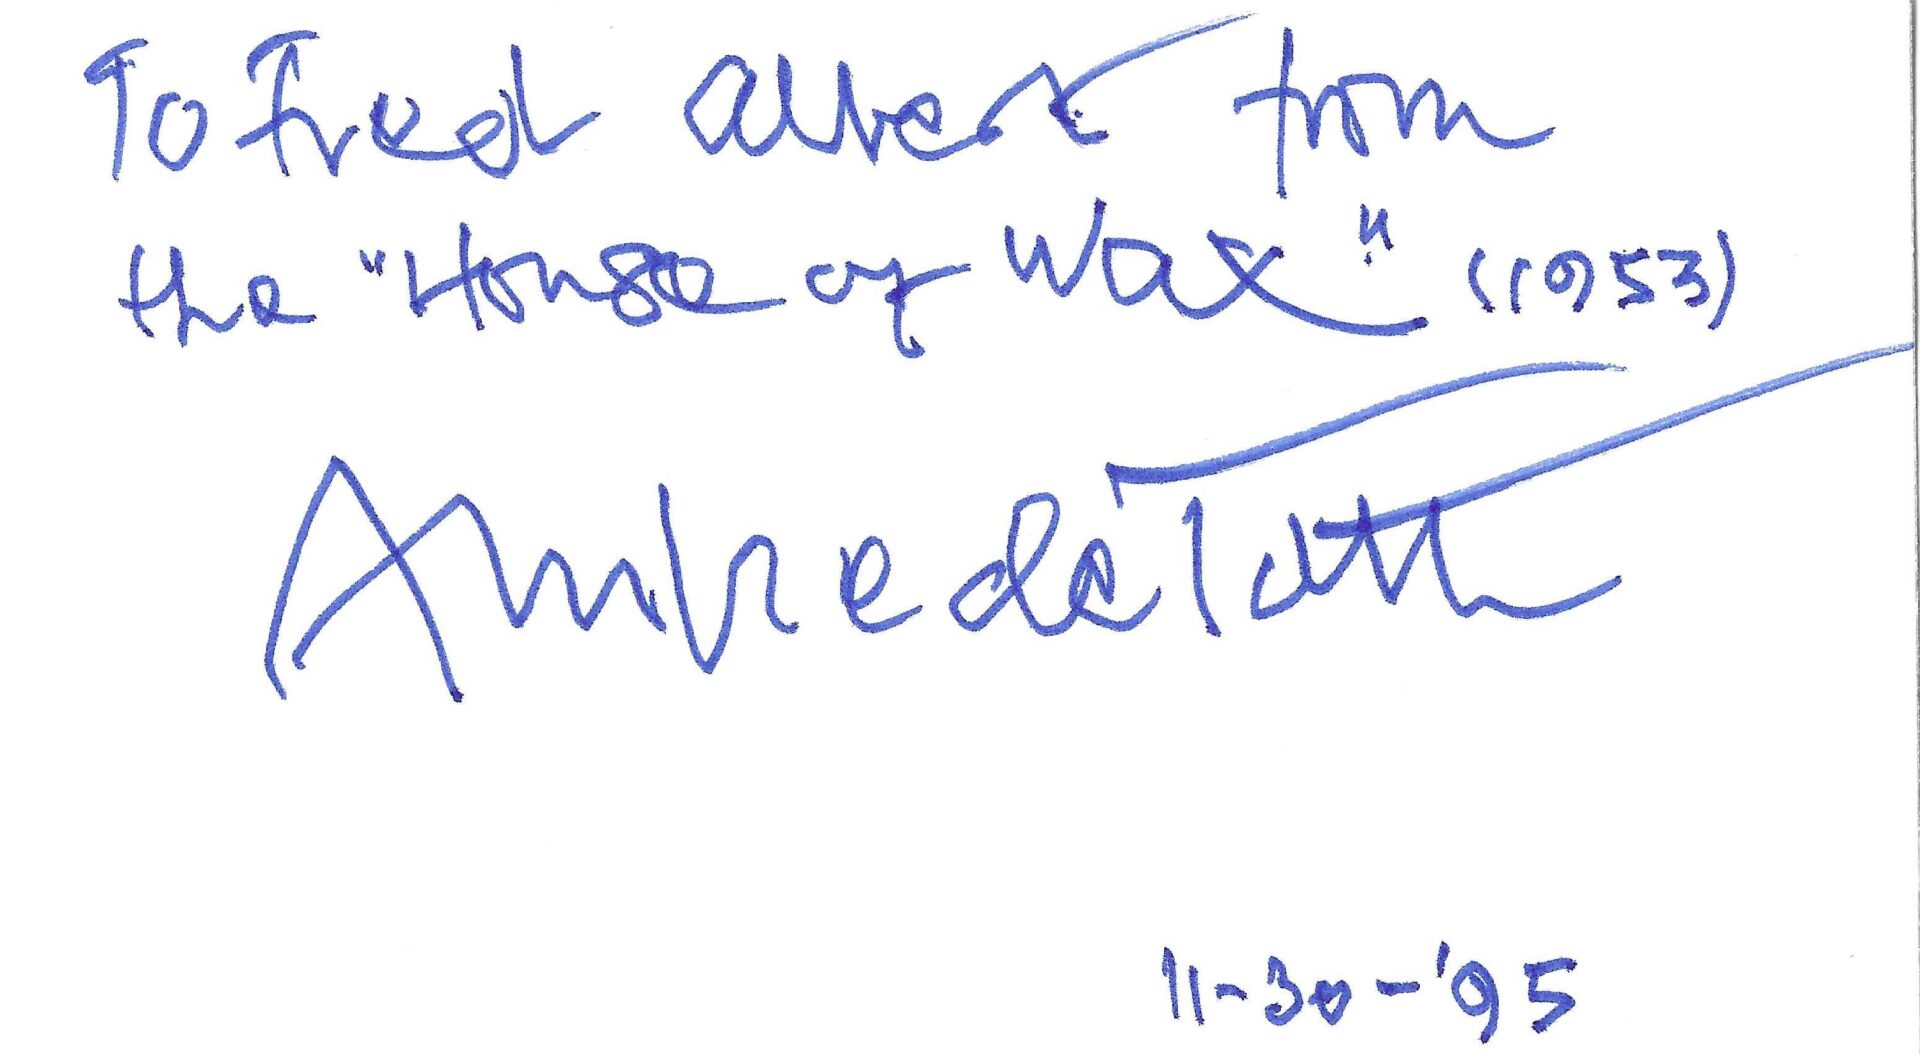 To Fred Albert from
the "House of Wax" (1953)
Andre de Toth
11-30-'95